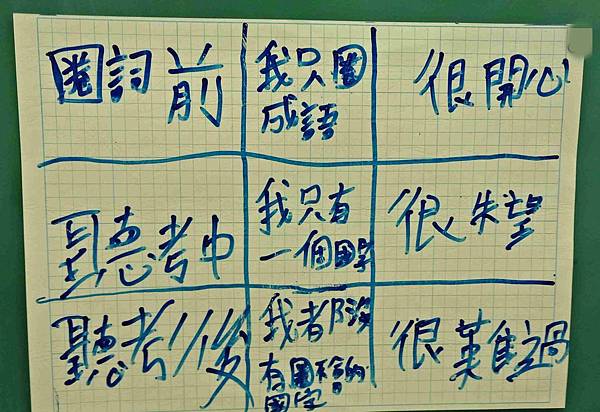 圈詞前
我只圈
成語
很開心
聽考中
我只有
一個國字
很失望
聽考後
我都沒
有圈不會的
國字
很難過